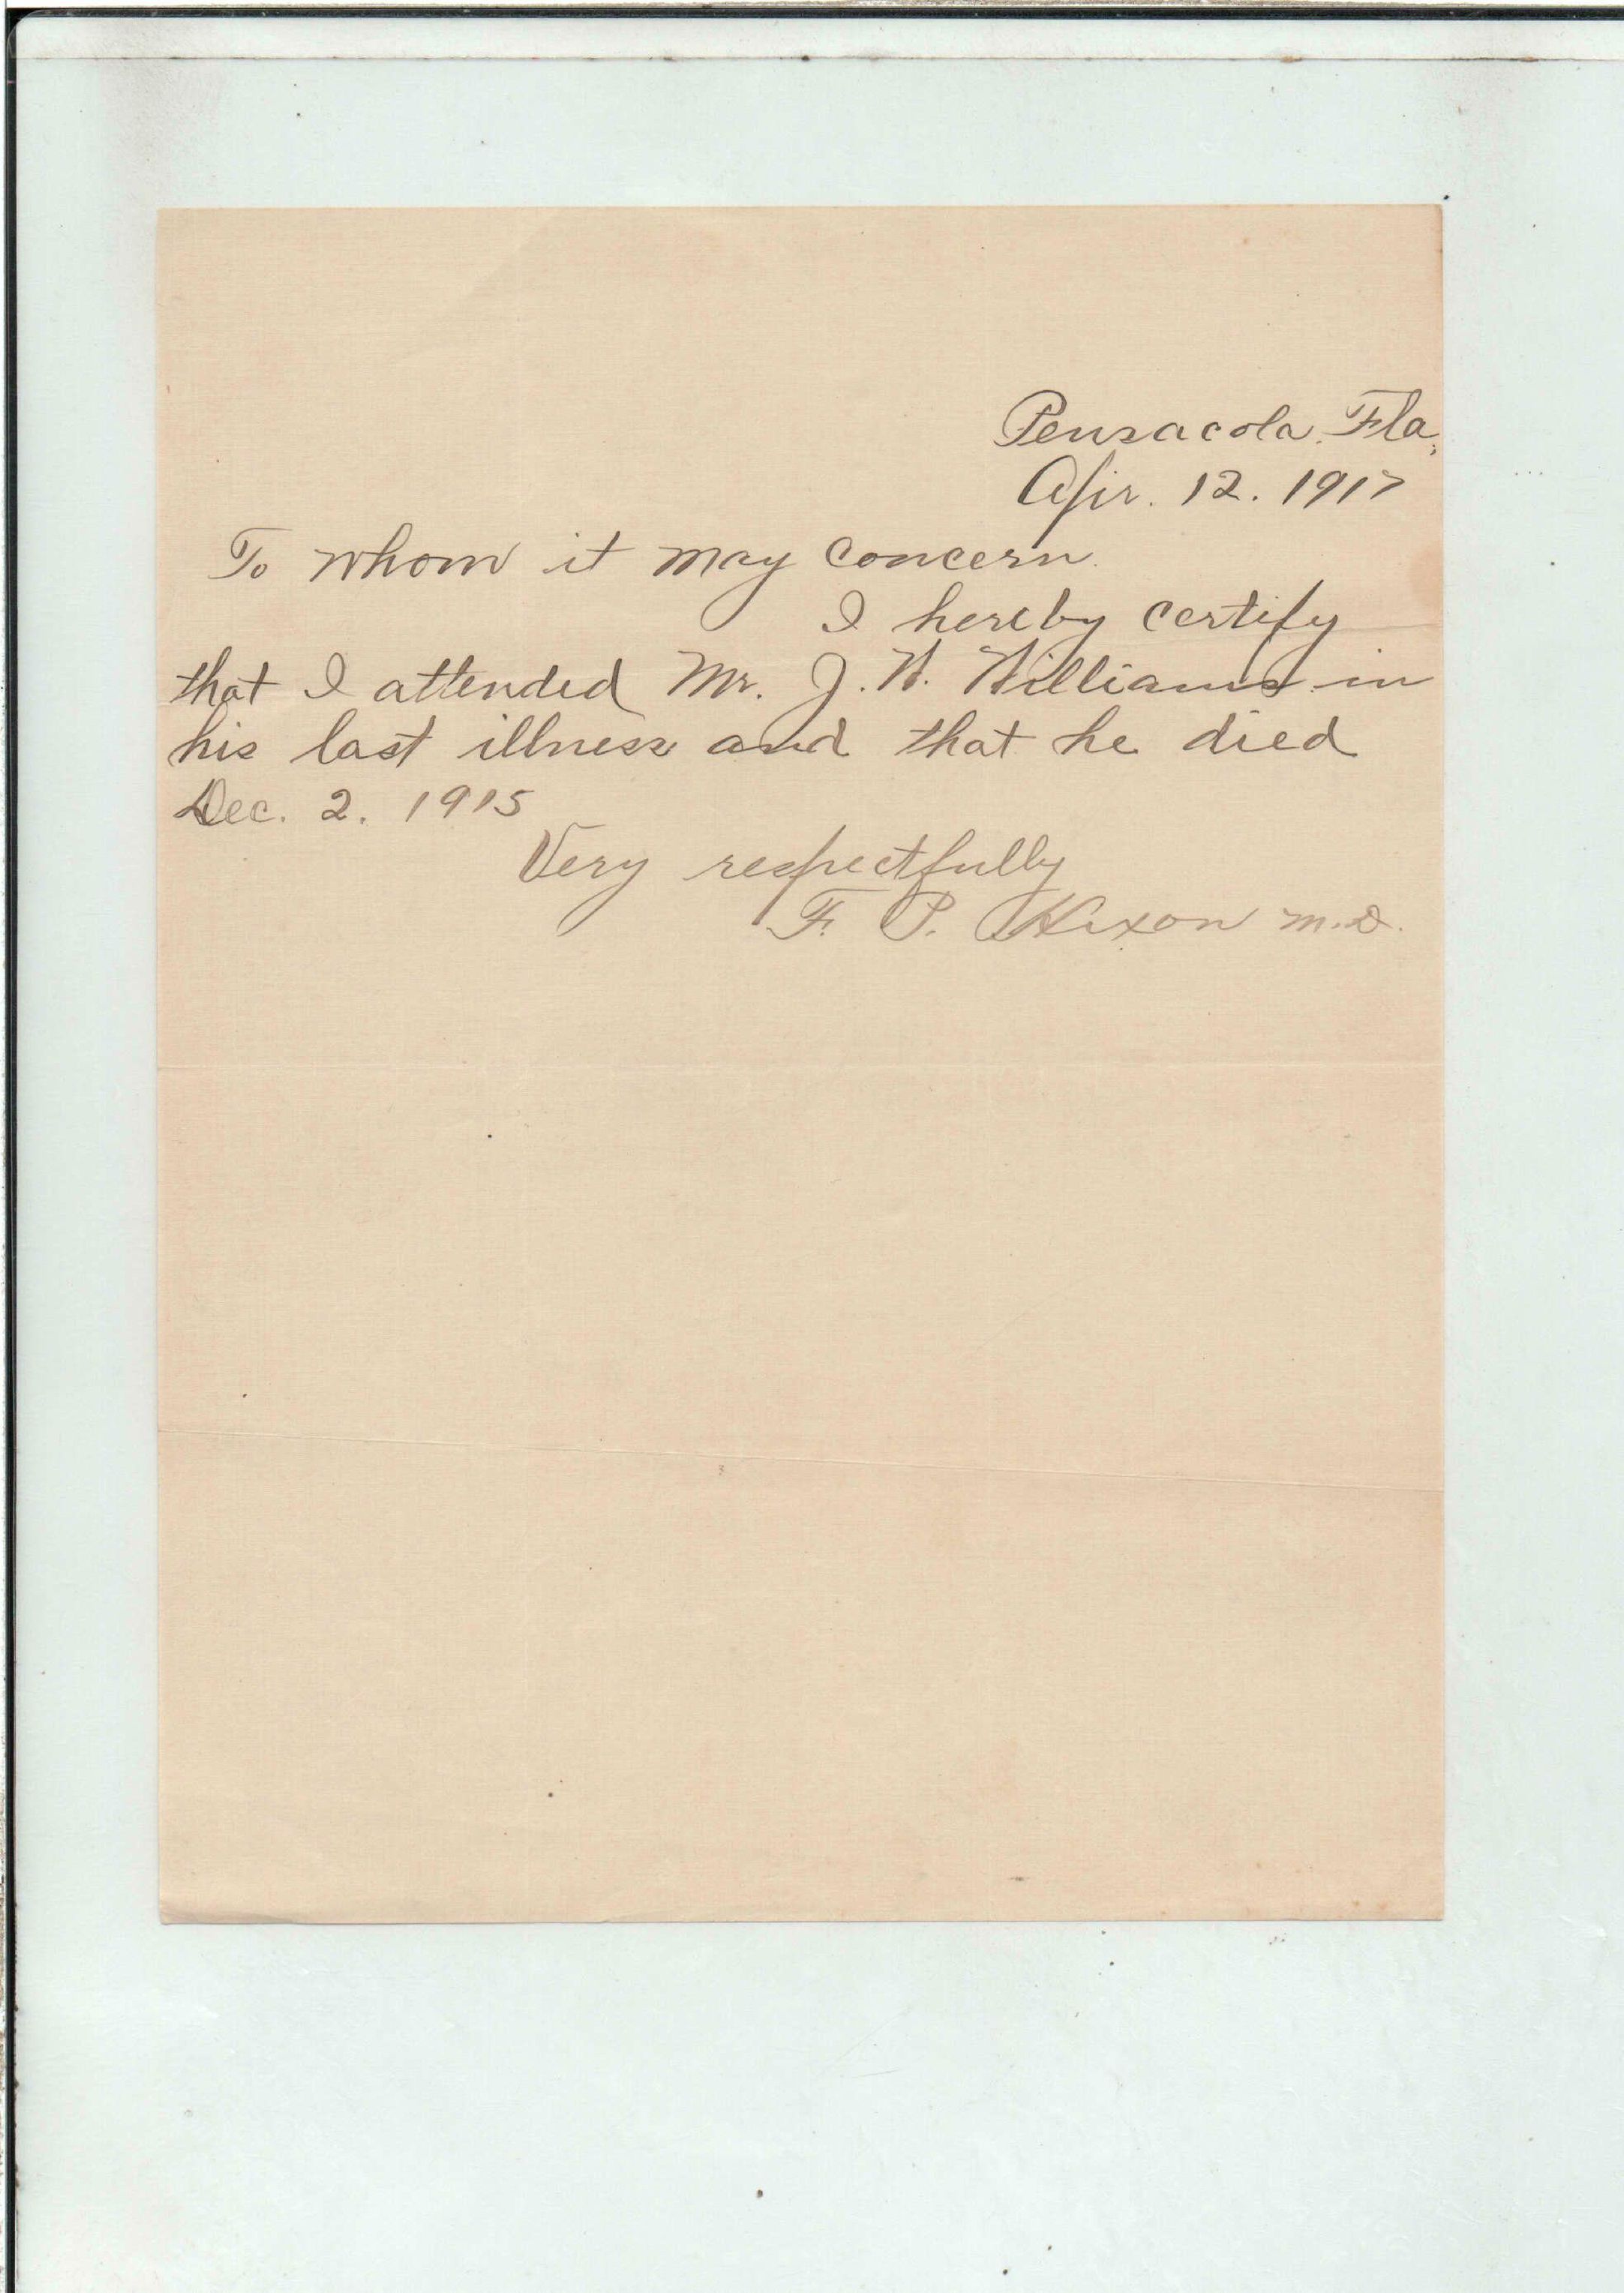 Pensacola. Fla;
Apr. 12. 1917
To whom it may concern.
I hereby certify
that I attended Mr. J. W. Williams in
his last illness and that he died
Dec. 2. 1915
Very respectfully
F. P. Hixon M.D.